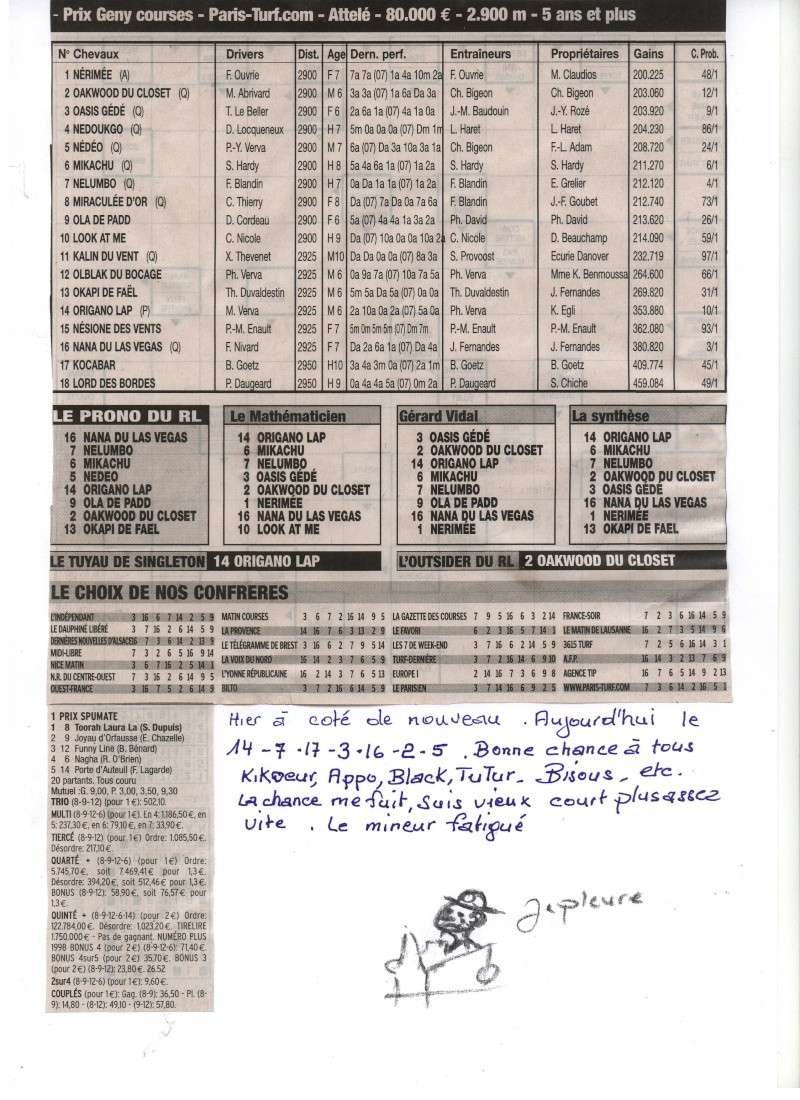 - Prix Geny courses - Paris-Turf.com - Attelé - 80.000 € - 2.900 m - 5 ans et plus
N° Chevaux Drivers Dist. Age Dern. perf. Entraîneurs Propriétaires Gains C. Prob.
1 NÉRIMÉE (A) F. Ouvrie 2900 F 7 7a 7a (07) 1a 4a 10m 2a F. Ouvrie M. Claudios 200.225 48/1
2 OAKWOOD DU CLOSET (Q) M. Abrivard 2900 M 6 3a 3a (07) 1a 6a Da 3a Ch. Bigeon Ch. Bigeon 203.060 12/1
3 OASIS GÉDÉ (Q) T. Le Beller 2900 F 6 2a 6a 1a (07) 4a 1a 0a J.-M. Baudouin J.-Y. Rozé 203.920 9/1
4 NEDOUKGO (Q) D. Locqueneux 2900 H 7 5m 0a 0a 0a (07) Dm 1m L. Haret L. Haret 204.230 86/1
5 NÉDÉO (Q) P.-Y. Verva 2900 M 7 6a (07) Da 3a 10a 3a 1a Ch. Bigeon F.-L. Adam 208.720 24/1
6 MIKACHU (Q) S. Hardy 2900 H 8 5a 4a 6a 1a (07) 1a 2a S. Hardy S. Hardy 211.270 6/1
7 NELUMBO (Q) F. Blandin 2900 H 7 0a Da 1a 1a (07) 1a 2a F. Blandin E. Grelier 212.120 4/1
8 MIRACULÉE D'OR (Q) C. Thierry 2900 F 8 Da (07) 7a Da 0a 7a 6a F. Blandin J.-F. Goubet 212.740 73/1
9 OLA DE PADD D. Cordeau 2900 F 6 5a (07) 4a 4a 1a 3a 2a Ph. David Ph. David 213.620 26/1
10 LOOK AT ME C. Nicole 2900 H 9 Da (07) 10a 0a 0a 10a 2a C. Nicole D. Beauchamp 214.090 59/1
11 KALIN DU VENT (Q) X. Thevenet 2925 M10 Da Da 0a 0a (07) 8a 3a S. Provoost Ecurie Danover 232.719 97/1
12 OLBLAK DU BOCAGE Ph. Verva 2925 M 6 0a 9a 7a (07) 10a 7a 5a Ph. Verva Mme K. Benmoussa 264.600 66/1
13 OKAPI DE FAËL Th. Duvaldestin 2925 M 6 5m 5a Da 5a (07) 0a 0a Th. Duvaldestin J. Fernandes 269.820 31/1
14 ORIGANO LAP (P) M. Verva 2925 M 6 2a 10a 0a 2a (07) 5a 0a Ph. Verva K. Egli 353.880 10/1
15 NÉSIONE DES VENTS P.-M. Enault 2925 F 7 5m 0m 5m 5m (07) Dm 7m P.-M. Enault P.-M. Enault 362.080 93/1
16 NANA DU LAS VEGAS (Q) F. Nivard 2925 F 7 Da 2a 6a 1a (07) Da 4a J. Fernandes J. Fernandes 380.820 3/1
17 KOCABAR B. Goetz 2950 H10 3a 4a 3m 0a (07) 2a 1m B. Goetz B. Goetz 409.774 45/1
18 LORD DES BORDES P. Daugeard 2950 H 9 0a 4a 4a 5a (07) 0m 2a P. Daugeard S. Chiche 459.084 49/1
LE PRONO DU RL
16 NANA DU LAS VEGAS
7 NELUMBO
6 MIKACHU
5 NEDEO
14 ORIGANO LAP
9 OLA DE PADD
2 OAKWOOD DU CLOSET
13 OKAPI DE FAEL
Le Mathématicien
14 ORIGANO LAP
6 MIKACHU
7 NELUMBO
3 OASIS GÉDÉ
2 OAKWOOD DU CLOSET
1 NERIMÉE
16 NANA DU LAS VEGAS
10 LOOK AT ME
Gérard Vidal
3 OASIS GÉDÉ
2 OAKWOOD DU CLOSET
14 ORIGANO LAP
6 MIKACHU
7 NELUMBO
9 OLA DE PADD
16 NANA DU LAS VEGAS
1 NERIMÉE
La synthèse
14 ORIGANO LAP
6 MIKACHU
7 NELUMBO
2 OAKWOOD DU CLOSET
3 OASIS GÉDÉ
16 NANA DU LAS VEGAS
1 NERIMÉE
13 OKAPI DE FAEL
LE TUYAU DE SINGLETON 14 ORIGANO LAP
L'OUTSIDER DU RL 2 OAKWOOD DU CLOSET
LE CHOIX DE NOS CONFRERES
L'INDÉPENDANT 3 16 6 7 14 2 5 9
LE DAUPHINÉ LIBÉRÉ 3 7 16 2 6 14 5 9
DERNIÈRES NOUVELLES D'ALSACE
MIDI-LIBRE 7 3 2 6 5 16 9 14
NICE MATIN 3 6 7 16 2 5 14 1
N.R. DU CENTRE-OUEST 7 3 16 2 6 14 9 5
OUEST-FRANCE 3 16 7 5 2 6 14 9
MATIN COURSES 3 6 7 2 16 14 9 5
LA PROVENCE 14 16 7 6 3 13 2 9
LE TÉLÉGRAMME DE BREST 3 16 6 2 7 9 5 14
LA VOIX DU NORD 16 14 2 3 7 6 5 9
L'YONNE RÉPUBLICAINE 16 2 14 3 7 6 5 13
BILTO 3 7 2 16 6 14 5 9
LA GAZETTE DES COURSES 7 9 5 16 6 3 2 14
LE FAVORI 6 2 3 16 5 7 14 1
LES 7 DE WEEK-END 3 7 16 6 2 14 5 9
TURF-DERNIÈRE 3 7 2 16 14 6 9 10
EUROPE I 2 14 16 7 3 6 9 8
LE PARISIEN 3 7 14 16 6 9 2 5
FRANCE-SOIR 7 2 3 6 16 14 5 9
LE MATIN DE LAUSANNE 16 2 7 3 5 14 9 6
3615 TURF 7 5 2 9 6 14 3 1
A.F.P. 16 14 3 2 13 7 6 9
AGENCE TIP 16 7 6 5 14 9 2 13
WWW.PARIS-TURF.COM 7 3 6 14 2 16 5 1
1 PRIX SPUMATE
1 8 Toorah Laura La (S. Dupuis)
2 9 Joyau d'Orfausse (E. Chazelle)
3 12 Funny Line (B. Bénard)
4 6 Nagha (R. O'Brien)
5 14 Porte d'Auteuil (F. Lagarde)
20 partants. Tous couru
Mutuel :G. 9,00, P. 3,00, 3,50, 9,30
TRIO (8-9-12) (pour 1€): 502,10.
MULTI (8-9-12-6) (pour 1€). En 4: 1.186,50€, en
5: 237,30€, en 6: 79,10€, en 7: 33,90€.
TIERCÉ (8-9-12) (pour 1€) Ordre: 1.085,50€.
Désordre: 217,10€.
QUARTÉ + (8-9-12-6) (pour 1€) Ordre:
5.745,70€, soit 7.469,41€ pour 1,3€.
Désordre: 394,20€, soit 512,46€ pour 1,3€.
BONUS (8-9-12): 58,90€, soit 76,57€ pour
1,3€.
QUINTÉ + (8-9-12-6-14) (pour 2€) Ordre:
122.784,00€. Désordre: 1.023,20€. TIRELIRE
1.750.000€ - Pas de gagnant. NUMÉRO PLUS
1998 BONUS 4 (pour 2€) (8-9-12-6): 71,40€.
BONUS 4sur5 (pour 2€) 35,70€. BONUS 3
(pour 2€) (8-9-12): 23,80€. 26.52
2sur4 (8-9-12-6) (pour 1€): 9,60€.
COUPLÉS (pour 1€): Gag. (8-9): 36,50 - Pl. (8-
9): 14,80 - (8-12): 49,10 - (9-12): 57,80.
Hier à coté de nouveau . Aujourd'hui le
14 - 7 - 17 - 3 - 16 - 2 - 5 . Bonne chance à tous
Kikoeur, Appo, Black, TuTur - Bisous - etc.
La chance me fuit, suis vieux court plus assez
vite . Le mineur fatigué
Je pleure